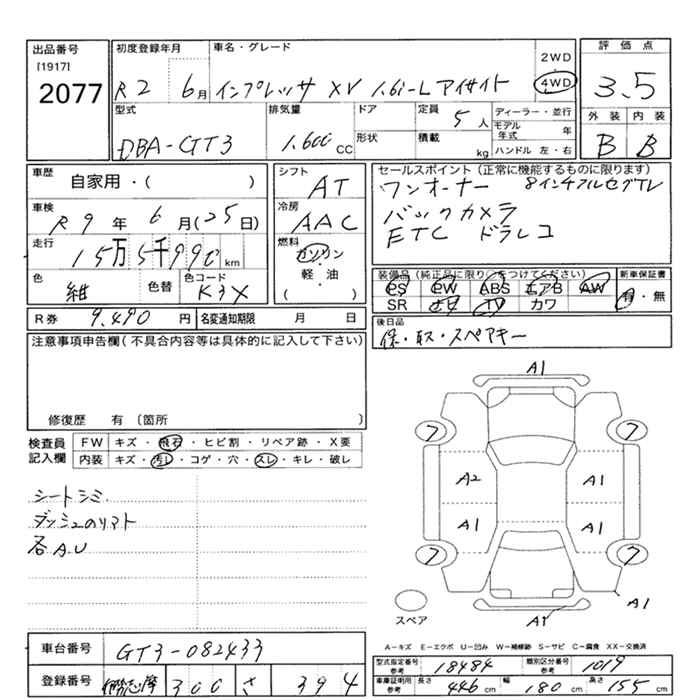 出品番号 初度登録年月 車名・グレード 2WD 評価点
[1917] R2 6月 インプレッサ XV 1.6i-L アイサイト 4WD 3.5
2077 型式 排気量 ドア 定員 5人 ディーラー・並行 外装 内装
DBA-GT3 1,600 CC 形状 積載 kg モデル年式 年 B B
ハンドル 左・右
車歴 自家用・( ) シフト AT セールスポイント(正常に機能するものに限ります)
車検 R9年 6月(25日) 冷房 AAC ワンオーナー 8インチフルセグTV
走行 15万5千99 km 燃料 ガソリン バックカメラ
軽・油 ETC ドラレコ
( )
色 紺 色替 色コード K3X 装備品(純正品に限り○をつけてください) 新車保証書
PS PW ABS エアB AW 有・無
SR TV カワ
R券 9,490円 名変通知期限 月 日 後日品
注意事項申告欄(不具合内容等は具体的に記入して下さい) 保・取ス・スペアキー
修復歴 有 〔箇所 〕
検査員 FW キズ・飛石・ヒビ割・リペア跡・X要
記入欄 内装 キズ・汚レ・コゲ・穴・スレ・キレ・破レ
シートシミ
ダッシュのリアト
各AU
A1
7 7
A2 A1
A1 A1
7 7
A1
スペア A1
A=キズ E=エクボ U=凹み W=補修跡 S=サビ C=腐食 XX=交換済
車台番号 GT3-082433 型式指定番号 参考 18484 類別区分番号 参考 1019
登録番号 300 さ 394 車庫証明用 参考 長さ 446cm 幅 180cm 高さ 155cm